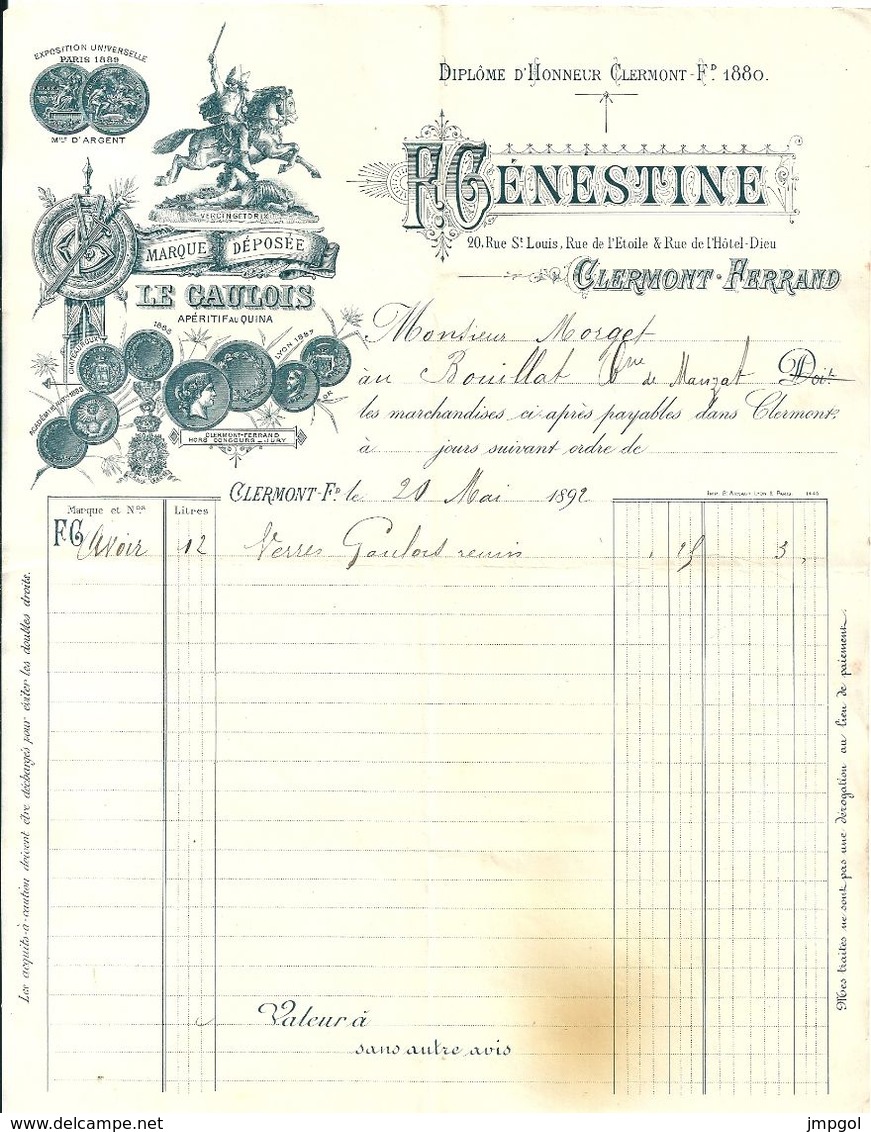 EXPOSITION UNIVERSELLE
PARIS 1889
Mlle D'ARGENT
VERCINGETORIX
MARQUE DÉPOSÉE
LE GAULOIS
APÉRITIF AU QUINA
DIPLÔME D'HONNEUR CLERMONT-FD 1880.
F. GÉNESTINE
20, Rue St Louis, Rue de l'Etoile & Rue de l'Hôtel-Dieu
CLERMONT-FERRAND
CHATEAUROUX
LYON 1887
OR
CLERMONT-FERRAND
HORS CONCOURS - JURY
Monsieur Morget
au Bouillat Cne de Manzat Doit
les marchandises ci après payables dans Clermont,
à jours suivant ordre de
CLERMONT-FD le 20 Mai 1892
Marque et Nos Litres
FG Avoir 12 Verres Gaulois remis , 25 3 ,
Les acquits-à-caution doivent être déchargés pour éviter les doubles droits.
Mes traites ne sont pas une dérogation au lieu de paiement.
Valeur à
sans autre avis
delcampe.net
jmpgol